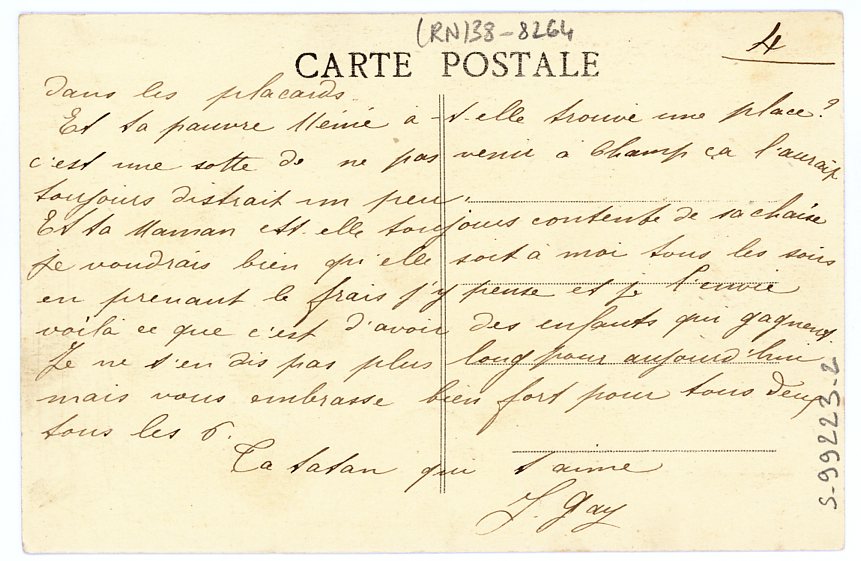 (RN)38-8264
4
CARTE POSTALE
dans les placards.
Et ta pauvre Mémé a-t-elle trouvé une place?
c'est une sotte de ne pas venir à Champ ça l'aurait
toujours distrait un peu.
Et ta Maman est-elle toujours contente de sa chaise
je voudrais bien qu'elle soit à moi tous les soirs
en prenant le frais j'y pense et je l'envie
voilà ce que c'est d'avoir des enfants qui gagnent
Je ne t'en dis pas plus long pour aujourd'hui
mais vous embrasse bien fort pour tous deux
tous les 6.
Ta tatan qui t'aime
J. Gay
S-99223-2